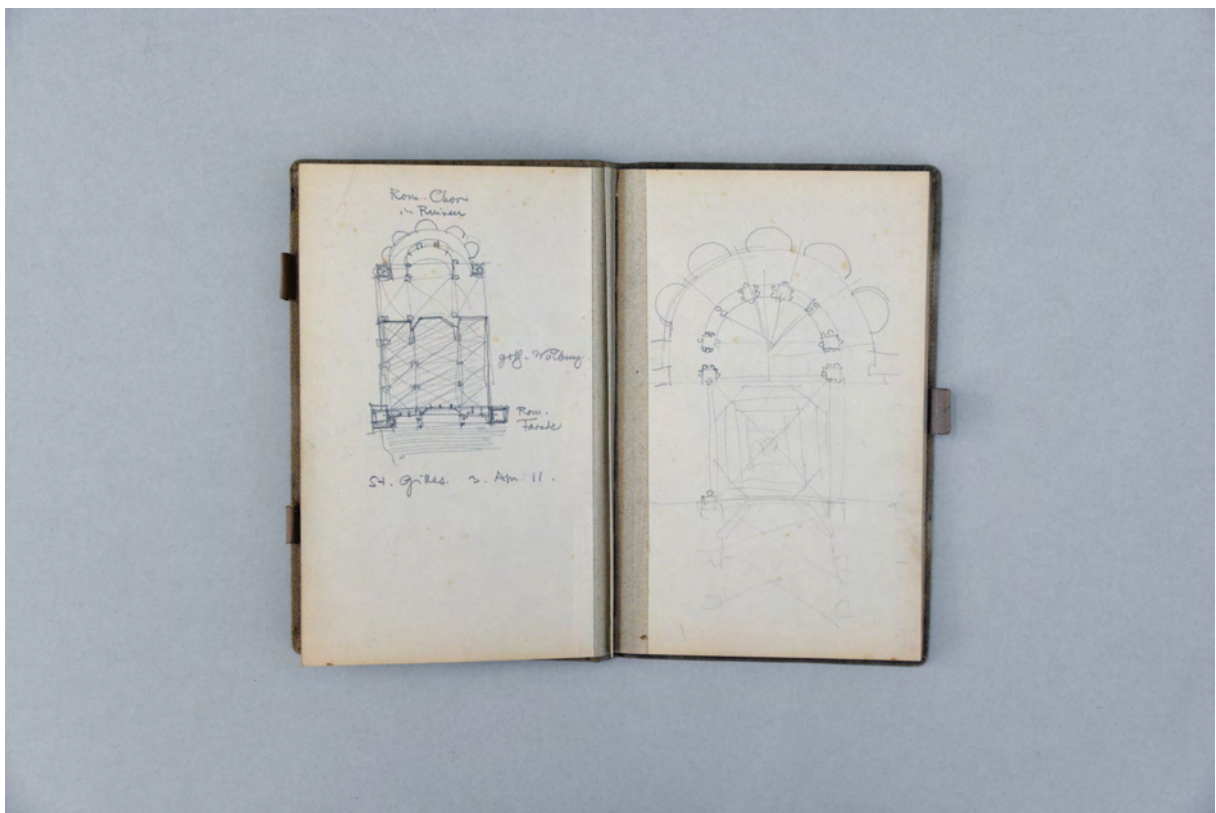 Rom. Chor
in Ruinen
Wölbung
Rom.
Facade
St. Gilles. 3. Apr. 11.